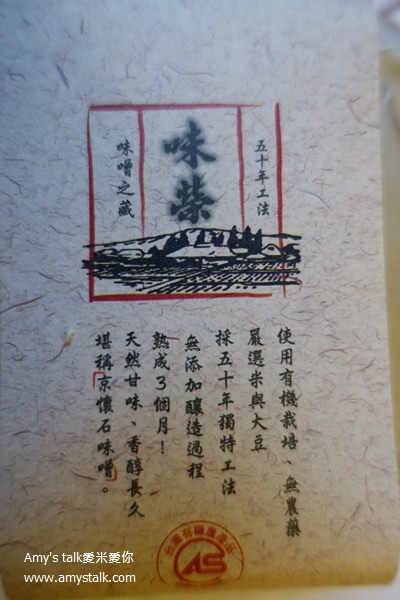 五十年工法
味榮
味噌之藏
使用有機栽培、無農藥
嚴選米與大豆
採五十年獨特工法
無添加釀造過程
熟成3個月！
天然甘味、香醇長久
堪稱「京懷石味噌」。
台灣有機農產品
Amy's talk愛米愛你
www.amystalk.com